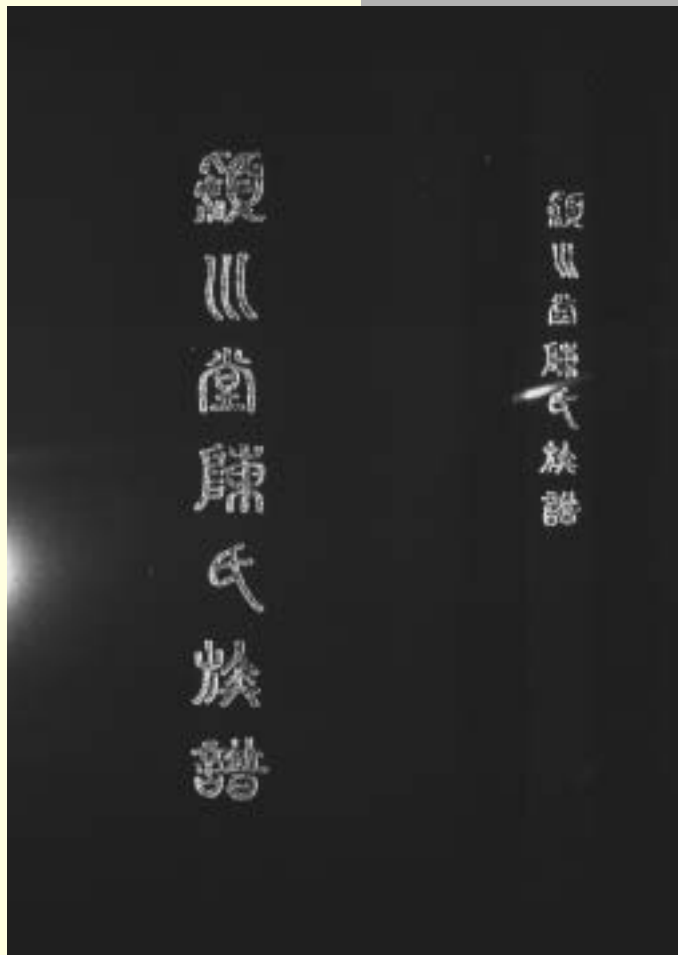 潁川堂陳氏族譜
潁川堂陳氏族譜